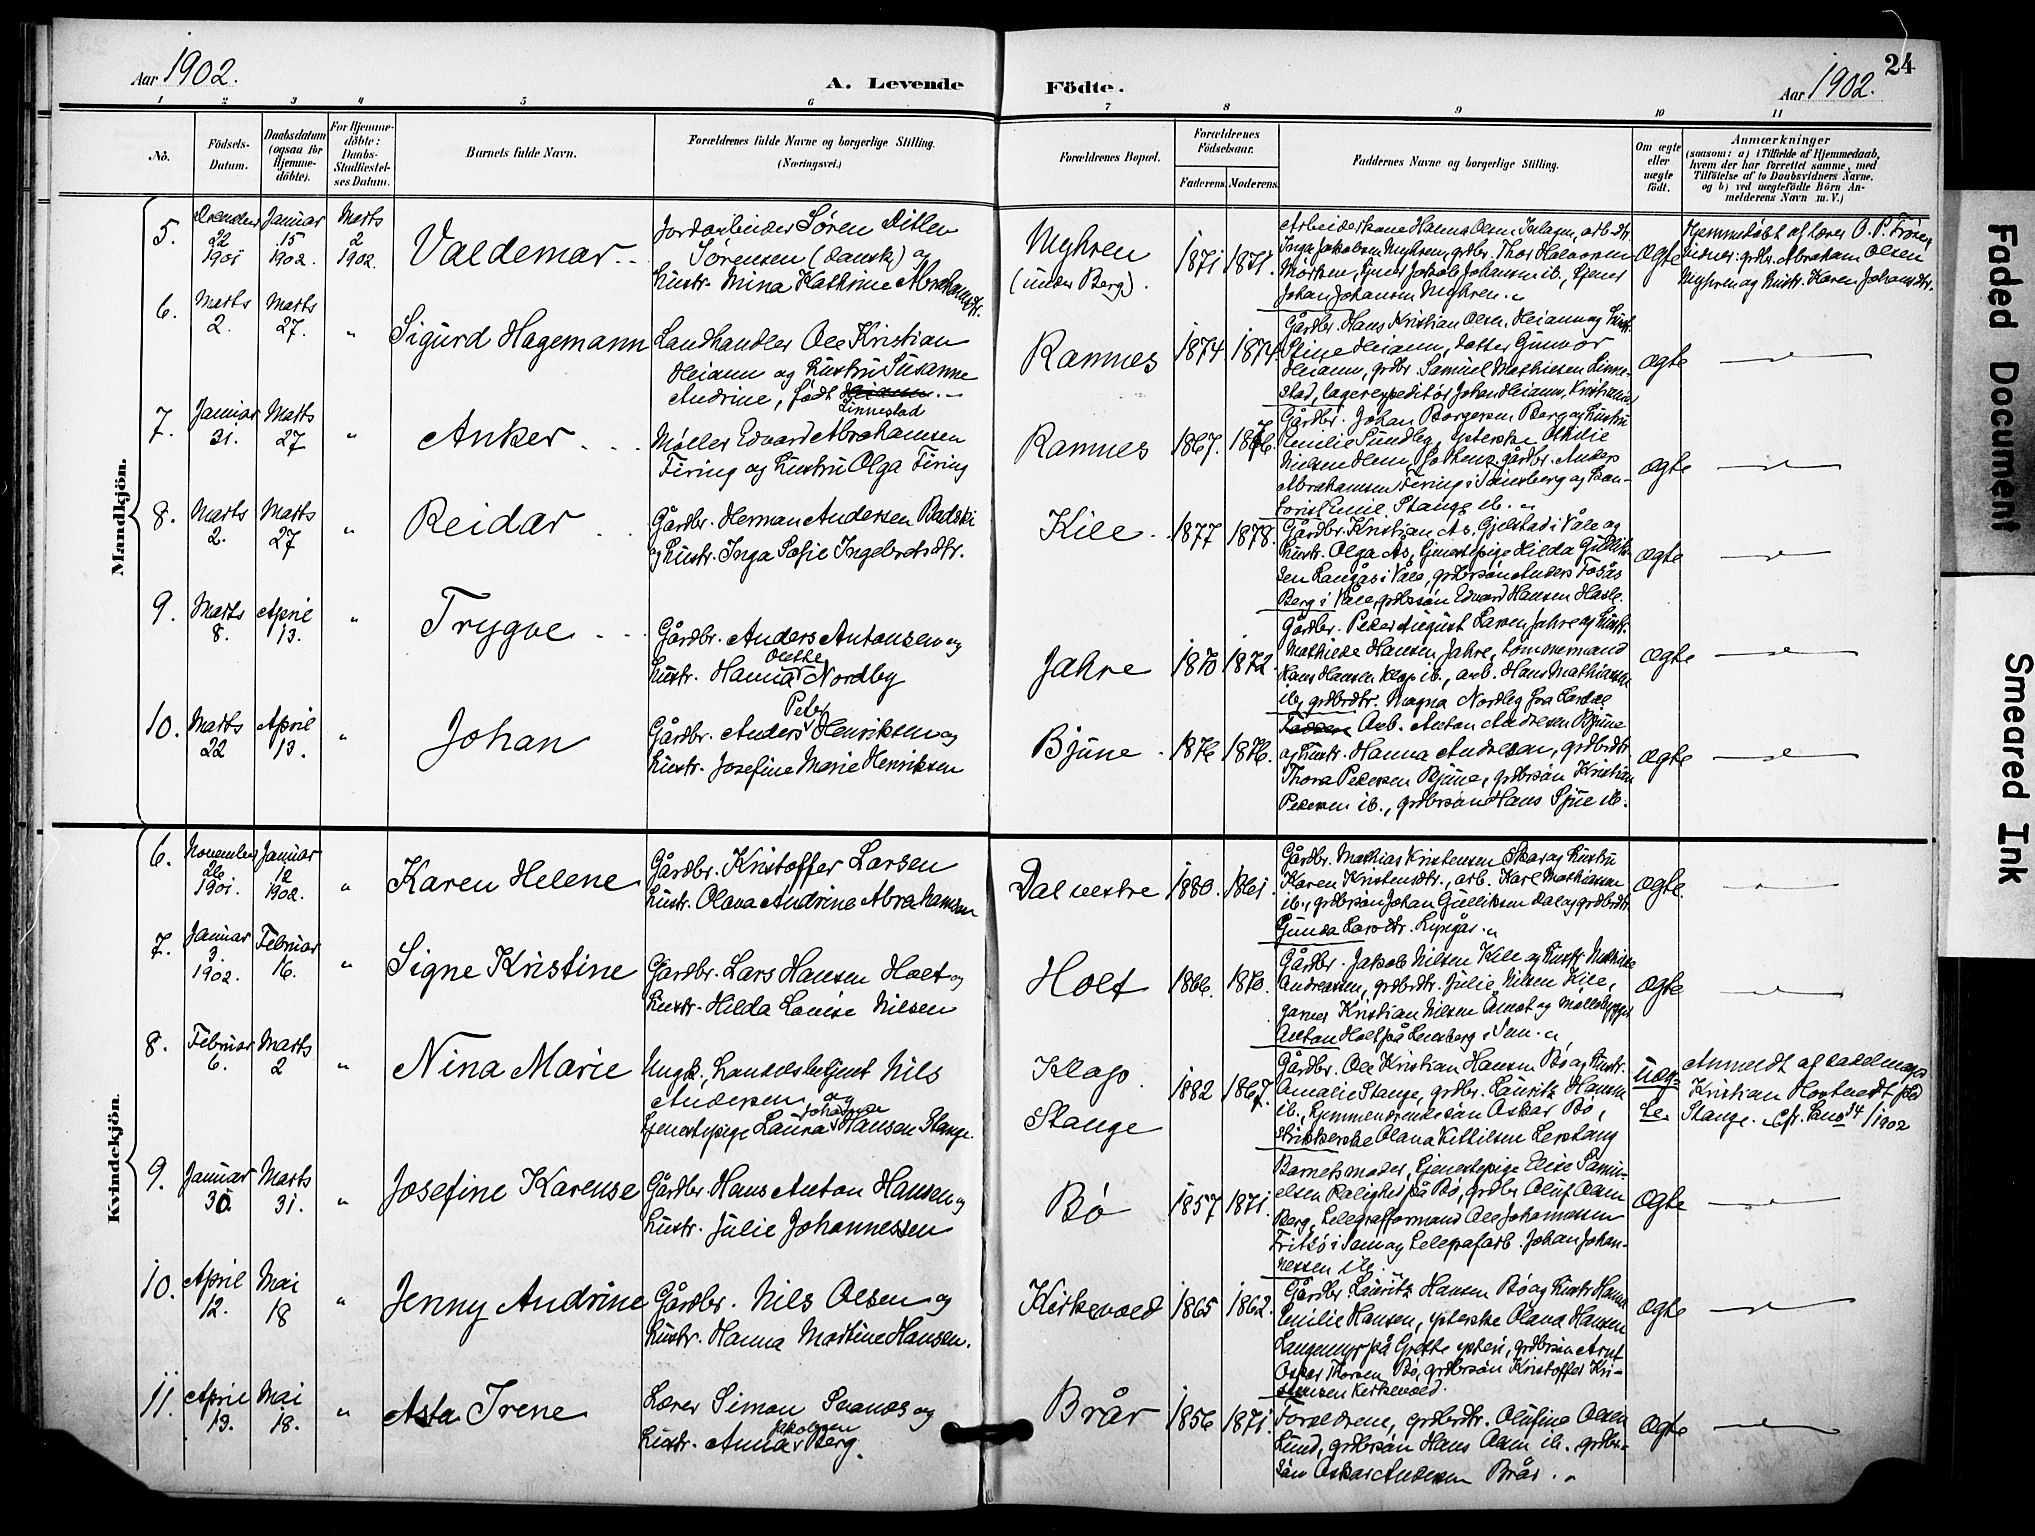 24
Aar 1902.
A. Levende
Födte.
Aar 1902.
1 2 3 4 5 6 7 8 9 10 11
No.
Födsels-
Datum.
Daabsdatum
(ogsaa för
Hjemme-
döbte).
For Hjemme-
döbte:
Daabs-
Stadfæstel-
ses Datum.
Barnets fulde Navn.
Forældrenes fulde Navne og borgerlige Stilling.
(Næringsvei.)
Forældrenes Bopæl.
Forældrenes
Födselsaar.
Faderens. Moderens.
Faddernes Navne og borgerlige Stilling.
Om ægte
eller
uægte
födt.
Anmærkninger
(saasom: a) i Tilfælde af Hjemmedaab,
hvem der har forrettet samme, med
Tilföielse af to Daabsvidners Navne,
og b) ved uægtefödte Börn An-
melderens Navn m. V.)
Mandkjön.
5.
22
1901
Januar
15
1902.
Marts
2
1902.
Valdemar
Jordarbeider Søren Ditlev
Sørensen (dansk) og
Hustr. Mina Kathrine Abrahamsdtr.
Myhren
(under Berg).
1871 1871.
Inga Jakobsen Myhren, grdbr. Thor Halvorsen
Johan Johansen Myhren.
ægte
Hjemmedøbt af lærer O. P.
vidner: grdbr. Abraham Olsen
Myhren og hustr. Karen Johansdtr.
6.
Marts
2.
Marts
27.
"
Sigurd Hagemann
Landhandler Ole Kristian
Heiann og hustru Susanne
Andrine, født Heiann
Linnestad
Ramnes
1874 1874
Gårdbr. Hans Kristian Olsen Heiann og hustr.
Stine Heiann, datter Gunvor
Heiann, grdbr. Samuel Mathiesen Linne-
stad, lagerexpeditør Johan Heiann, Kristiania
ægte
7.
Januar
31.
Marts
27
"
Anker
Møller Edvard Abrahamsen
Firing og hustru Olga Firing
Ramnes
1867. 1876.
Gårdbr. Johan Borgersen Berg og hustru
Emilie Sundby, Othilie
Nielsen Hem, gårdbr. Anders
Abrahamsen Firing i Tønsberg og
Emil Stange ib.
ægte
8.
Marts
2.
Marts
27
"
Reidar
Gårdbr. Herman Andersen
og Hustr. Inga Sofie Ingebretsdtr.
Kile
1877 1878.
Gårdbr. Kristian As, Gjelstad i Våle og
hustr. Olga As, tjenestepige Hilda Gullik-
sen Langås i Våle, grdbrsøn Anders
Berg i Våle, grdbrsøn Edvard Hansen Hasle.
ægte
9.
Marts
8.
April
13.
"
Trygve
Gårdbr. Anders Antonsen og
Hustr. Hanna Olethe Nordby
Jahre
1870 1872.
Gårdbr. Peder August Larsen Jahre og hustr.
Mathilde Hansen Jahre, tømmermand
Hans Hansen Klop ib., arb. Hans Mathiassen
ib., grdbrdtr. Magna Nordby fra Lardal
ægte
10.
Marts
22
April
13.
"
Johan
Gårdbr. Anders Peter Henriksen og
hustr. Josefine Marie Henriksen
Bjune
1876 1876.
Arb. Anton Andersen Bjune
og hustr. Hanna Andersen, grdbrdtr.
Thora Pedersen Bjune, grdbrsøn Kristian
Pedersen ib., grdbrsøn Hans Sjue ib.
ægte
Kvindekjön.
6.
November
26
1901.
Januar
12
1902.
"
Karen Helene
Gårdbr. Kristoffer Larsen
hustr. Olava Andrine Abrahamsen
Dal vestre
1880. 1861.
Gårdbr. Mathias Kristensen og hustru
Karen Kristensdtr., arb. Karl Mathiassen
ib., grdbrsøn Johan Gulliksen Dal og grdbrdtr.
Gunda Larsdtr.
ægte.
7.
Januar
3.
1902.
Februar
16.
"
Signe Kristine
Gårdbr. Lars Hansen Holt og
hustr. Hilda Louise Nilsen
Holt
1866. 1870.
Gårdbr. Jakob Nilsen Kile og hustr. Mathilde
Andreassen, grdbrdtr. Julie Nilsen Kile,
garver Kristian Nilsen Åmot og møllebygger
Anton Holt på Lensberg i Sem.
ægte
8.
Februar
6.
Marts
2
"
Nina Marie
Ungk., handelsbetjent Nils
Andersen og
tjenestepige Laura Johanne Hansen Stange.
Klop.
Stange
1882 1867.
Gårdbr. Ole Kristian Hansen Bø og hustr.
Amalie Stange, grdbr. Lauritz Hansen
ib., hjemmeværende søn Oskar Bø,
Olava Kittilsen
uæg-
te.
Anmeldt af sadelmager
Kristian Hortvedt på
Stange.
9.
Januar
30.
Marts
31.
"
Josefine Karense
Gårdbr. Hans Anton Hansen og
hustr. Julie Johannessen
Bø
1857 1871.
Barnets moder, tjenestepige Elise Samu-
elsen Rolighet på Bø, grdbr. Oluf Olsen
Berg, telegrafformand Ole Johannessen
Fritsø i Sem og telegrafarb. Johan Johan-
nessen ib.
ægte
10.
April
12.
Mai
18
"
Jenny Andrine
Gårdbr. Nils Olsen og
hustr. Hanna Martine Hansen.
Kirkevold
1865 1862.
Gårdbr. Lauritz Hansen Bø og hustr. Hanna
Emilie Hansen, Olava Hansen
Langemyr på Grette ysteri, grdbrsøn Arnt
Oskar Thorsen Bø, grdbrsøn Kristoffer Kri-
stensen Kirkevold.
ægte
11.
April
13.
Mai
18.
"
Asta Irene
Lærer Simon Svanes og
hustr. Anna Jakobsen Berg.
Brår
1856 1871.
Forældrene, grdbrdtr. Olufine Olsen
Lund, grdbrsøn Hans Olsen ib. grdbr.-
søn Oskar Andersen Brår.
ægte
Faded Document
Smeared Ink